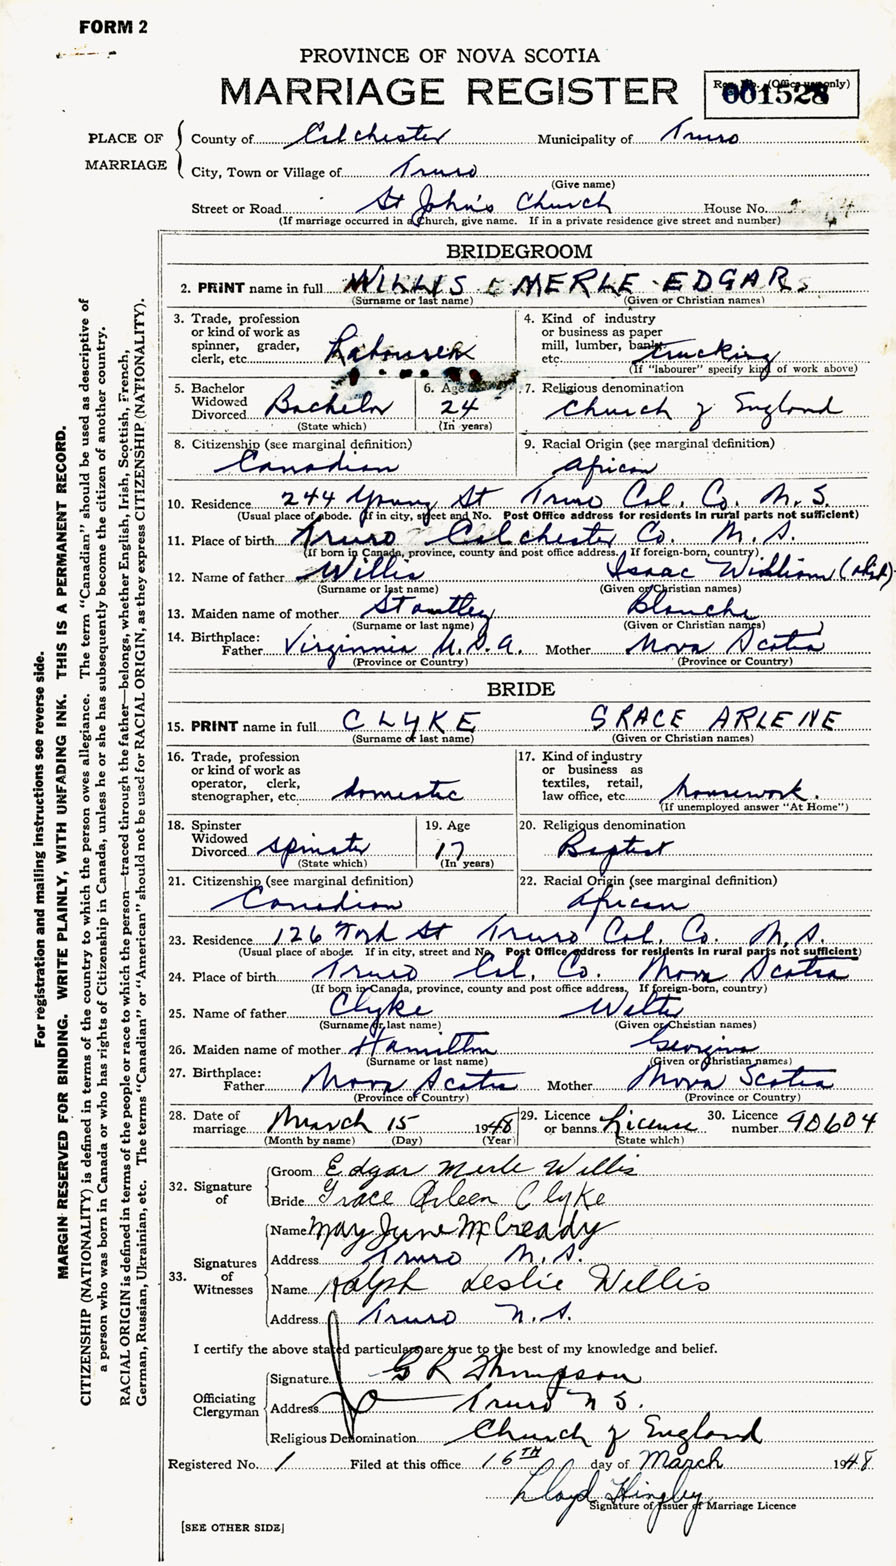 FORM 2
PROVINCE OF NOVA SCOTIA
MARRIAGE REGISTER
Reg. No. (Office use only)
001528
PLACE OF MARRIAGE
County of Colchester Municipality of Truro
City, Town or Village of Truro
(Give name)
Street or Road St John's Church House No.
(If marriage occurred in a Church, give name. If in a private residence give street and number)
BRIDEGROOM
2. PRINT name in full WILLIS MERLE EDGAR
(Surname or last name) (Given or Christian names)
3. Trade, profession or kind of work as spinner, grader, clerk, etc. Labourer
4. Kind of industry or business as paper mill, lumber, bank, etc. trucking
(If "labourer" specify kind of work above)
5. Bachelor Widowed Divorced Bachelor
(State which)
6. Age 24
(In years)
7. Religious denomination Church of England
8. Citizenship (see marginal definition) Canadian
9. Racial Origin (see marginal definition) African
10. Residence 244 Young St Truro Col. Co. N.S.
(Usual place of abode. If in city, street and No. Post Office address for residents in rural parts not sufficient)
11. Place of birth Truro Colchester Co. N.S.
(If born in Canada, province, county and post office address. If foreign-born, country)
12. Name of father Willis Isaac William
(Surname or last name) (Given or Christian names)
13. Maiden name of mother Stantley Blanche
(Surname or last name) (Given or Christian names)
14. Birthplace: Father Virginnia U.S.A. Mother Nova Scotia
(Province or Country) (Province or Country)
BRIDE
15. PRINT name in full CLYKE GRACE ARLENE
(Surname or last name) (Given or Christian names)
16. Trade, profession or kind of work as operator, clerk, stenographer, etc. domestic
17. Kind of industry or business as textiles, retail, law office, etc. housework.
(If unemployed answer "At Home")
18. Spinster Widowed Divorced Spinster
(State which)
19. Age 17
(In years)
20. Religious denomination Baptist
21. Citizenship (see marginal definition) Canadian
22. Racial Origin (see marginal definition) African
23. Residence 126 York St Truro Col. Co. N.S.
(Usual place of abode. If in city, street and No. Post Office address for residents in rural parts not sufficient)
24. Place of birth Truro Col. Co. Nova Scotia
(If born in Canada, province, county and post office address. If foreign-born, country)
25. Name of father Clyke Walter
(Surname or last name) (Given or Christian names)
26. Maiden name of mother Hamilton Georgina
(Surname or last name) (Given or Christian names)
27. Birthplace: Father Nova Scotia Mother Nova Scotia
(Province or Country) (Province or Country)
28. Date of marriage March 15 1948
(Month by name) (Day) (Year)
29. Licence or banns License
(State which)
30. Licence number 90604
32. Signature of
Groom Edgar Merle Willis
Bride Grace Arleen Clyke
33. Signatures of Witnesses
Name May June McCready
Address Truro N.S.
Name Ralph Leslie Willis
Address Truro N.S.
I certify the above stated particulars are true to the best of my knowledge and belief.
Officiating Clergyman
Signature G R Thompson
Address Truro N S.
Religious Denomination Church of England
Registered No. 1 Filed at this office 16TH day of March 1948
Lloyd Hingley
Signature of Issuer of Marriage Licence
[SEE OTHER SIDE]
For registration and mailing instructions see reverse side.
MARGIN RESERVED FOR BINDING. WRITE PLAINLY, WITH UNFADING INK. THIS IS A PERMANENT RECORD.
CITIZENSHIP (NATIONALITY) is defined in terms of the country to which the person owes allegiance. The term "Canadian" should be used as descriptive of
a person who was born in Canada or who has rights of Citizenship in Canada, unless he or she has subsequently become the citizen of another country.
RACIAL ORIGIN is defined in terms of the people or race to which the person—traced through the father—belongs, whether English, Irish, Scottish, French,
German, Russian, Ukrainian, etc. The terms "Canadian" or "American" should not be used for RACIAL ORIGIN, as they express CITIZENSHIP (NATIONALITY).